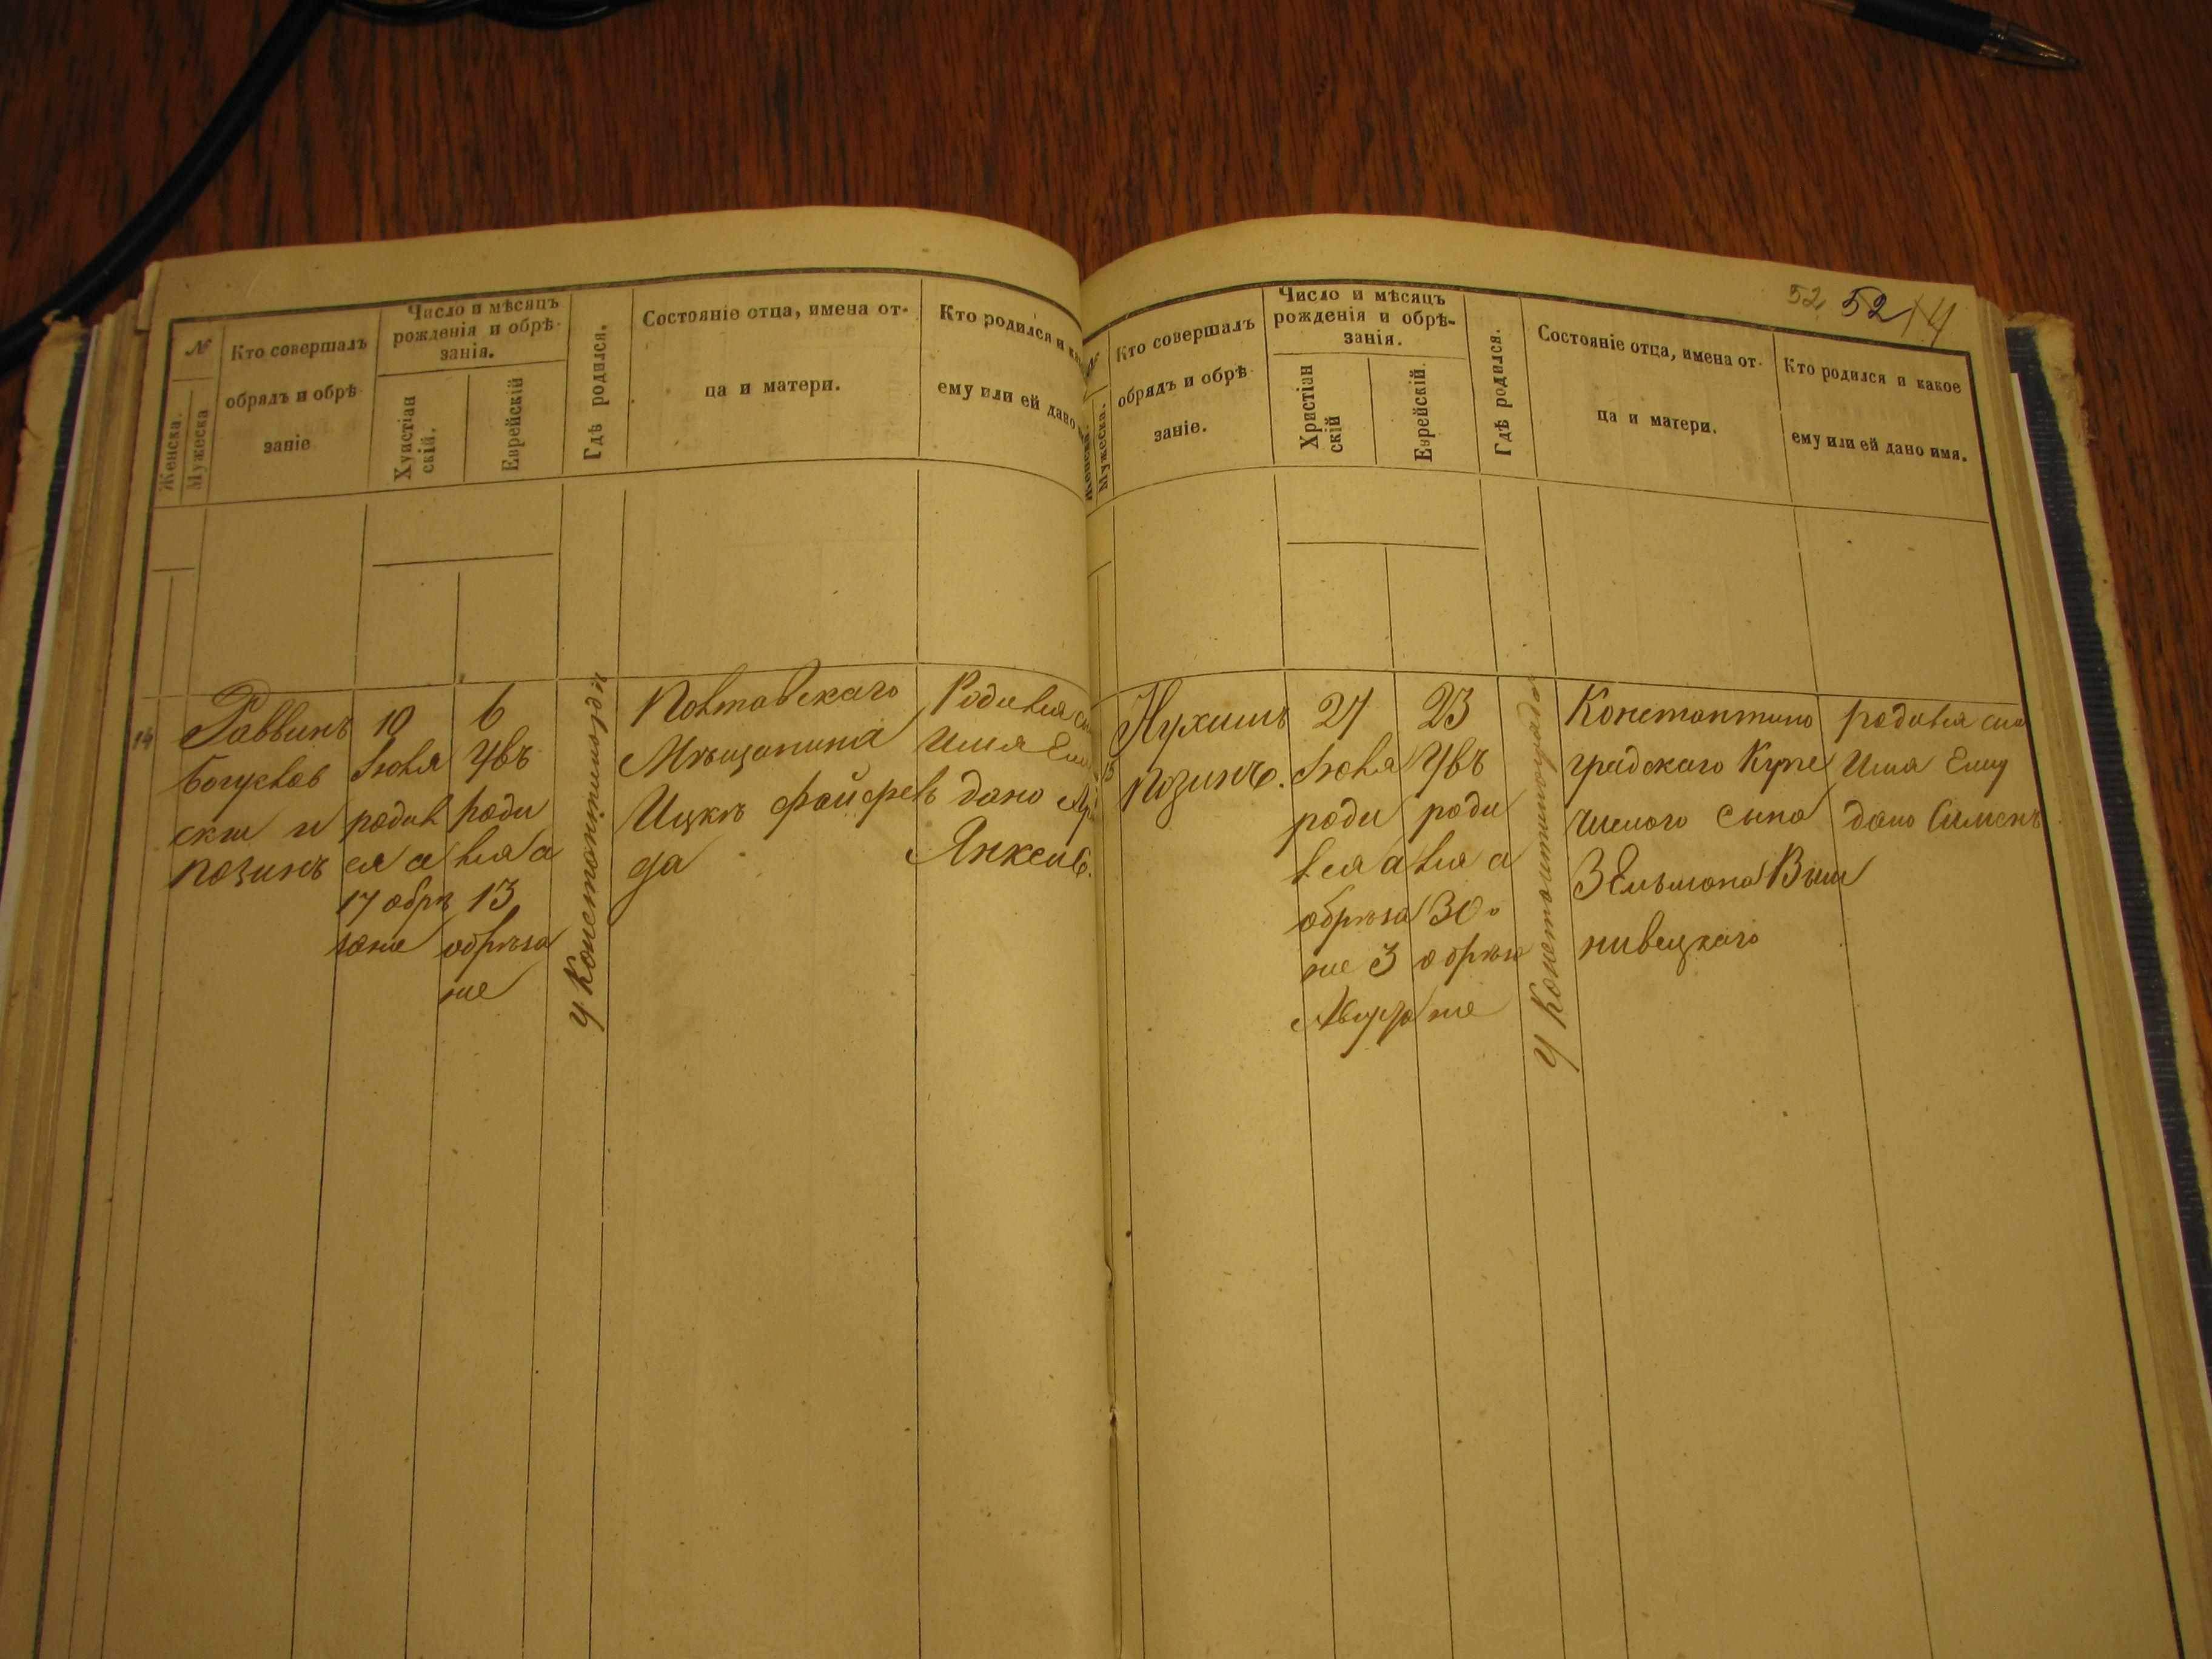 №
Женска.
Мужеска
Кто совершалъ
обрядъ и обрѣ-
заніе
Число и мѣсяцъ
рожденія и обрѣ-
занія.
Христіан
скій.
Еврейскій
Гдѣ родился.
Состояніе отца, имена от-
ца и матери.
Кто родился и
ему или ей дано
14
Раввинъ
Богуслав
скш и
позинъ
10
Іюля
родив
ся а
17 обрѣ
зание
6
Увъ
роди
вся а
13
обрѣза
ние
У Константиногр
Полтавскаго
Мѣщанина
Ицкъ
да
Родился
Имя Ему
дано
Янкель.
52 52 14
№
Женска.
Мужеска.
Кто совершалъ
обрядъ и обрѣ-
заніе.
Число и мѣсяцъ
рожденія и обрѣ-
занія.
Христіан
скій
Еврейскій.
Гдѣ родился.
Состояніе отца, имена от-
ца и матери.
Кто родился и какое
ему или ей дано имя.
Нухимъ
позинъ.
27
Іюля
роди
вся а
обрѣза
ние 3
Августа
23
Увъ
роди
вся а
30
обрѣза
ние
У Константинограда
Константино
градскаго Купе
ческого сына
Зельмана Виш
нивецкаго
родился сын
Имя Ему
дано Симонъ